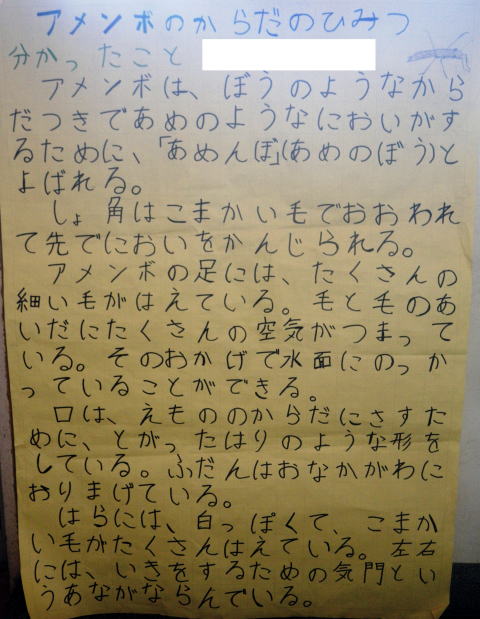 アメンボのからだのひみつ
分かったこと
アメンボは、ぼうのようなから
だつきであめのようなにおいがす
るために、「あめんぼ」(あめのぼう)と
よばれる。
しょ角はこまかい毛でおおわれ
て先でにおいをかんじられる。
アメンボの足には、たくさんの
細い毛がはえている。毛と毛のあ
いだにたくさんの空気がつまって
いる。そのおかげで水面にのっか
っていることができる。
口は、えもののからだにさすた
めに、とがったはりのような形を
している。ふだんはおなかがわに
おりまげている。
はらには、白っぽくて、こまか
い毛がたくさんはえている。左右
には、いきをするための気門とい
うあながならんでいる。